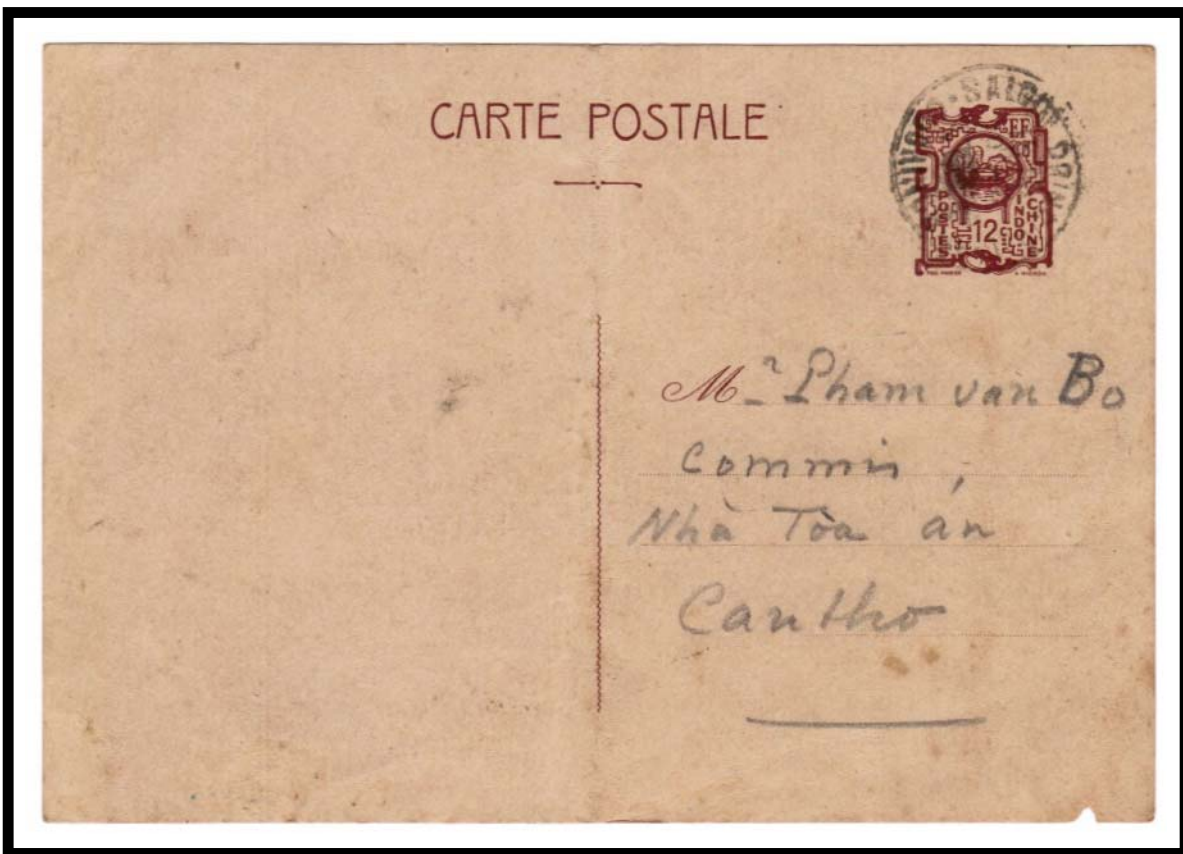 CARTE POSTALE
SAIGON
EF
POSTES
INDO
CHINE
12
Mr Pham van Bo
Commis,
Nhà Tòa án
Cantho